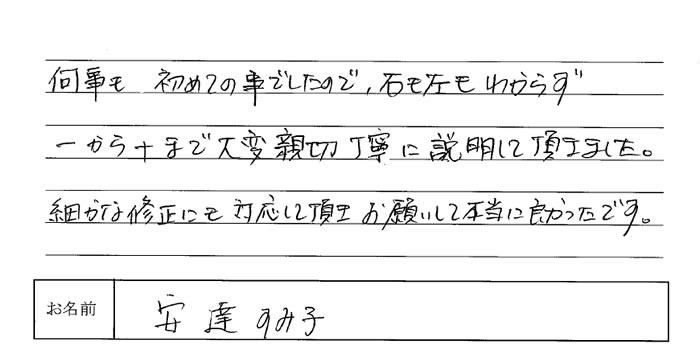 何事も 初めての事でしたので、右も左もわからず
一から十まで大変親切丁寧に説明して頂きました。
細かな修正にも対応して頂き お願いして本当に良かったです。
お名前 安達すみ子